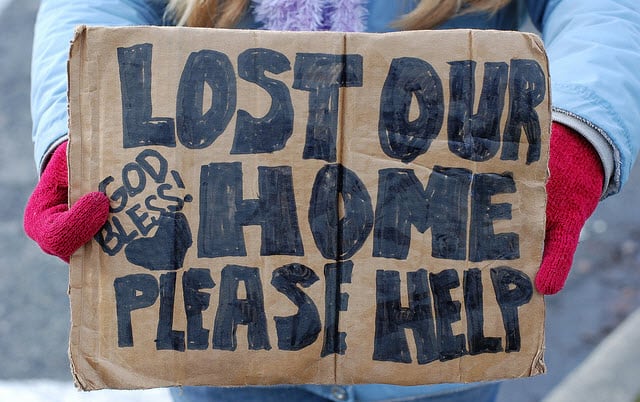 LOST OUR
HOME
PLEASE HELP
GOD
BLESS!